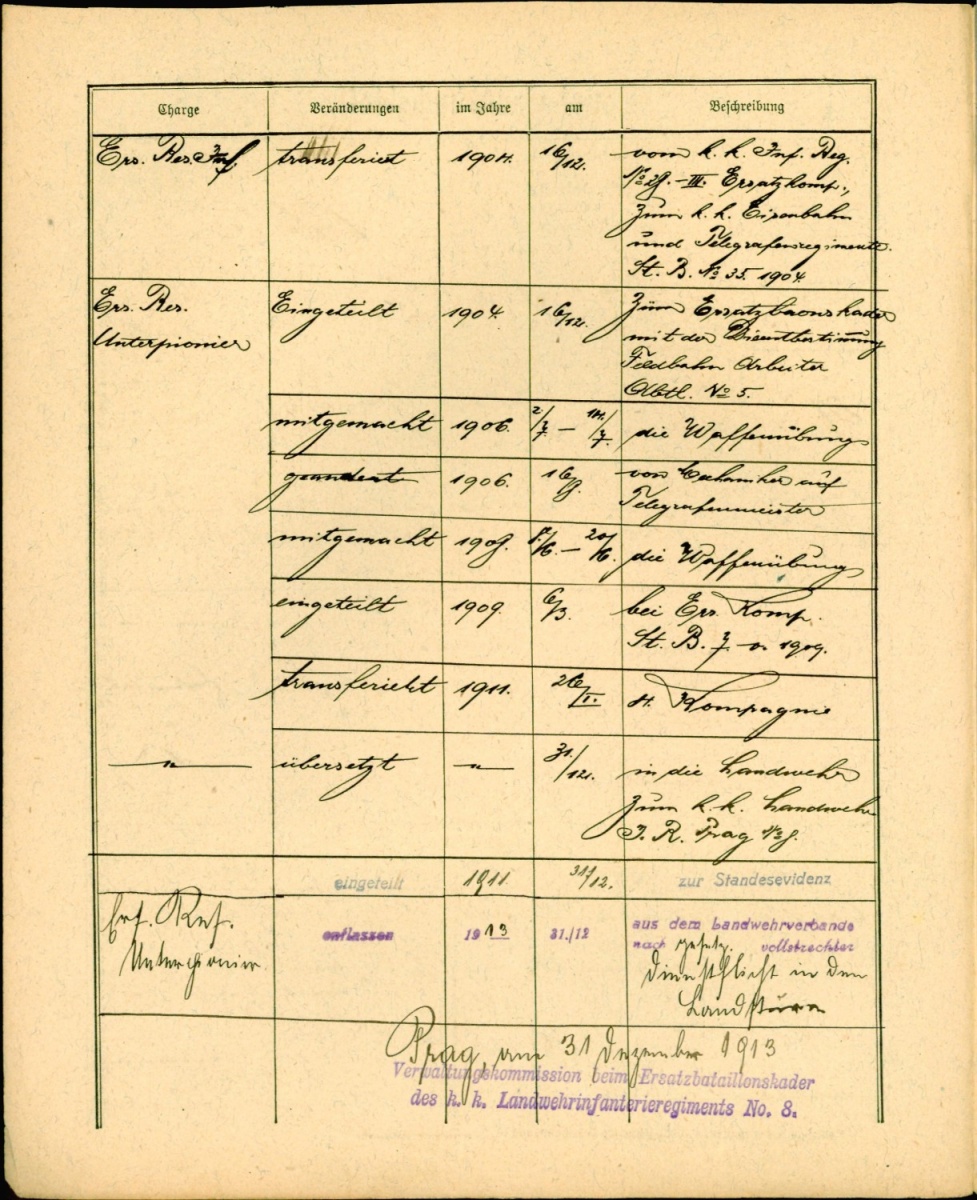 Charge Veränderungen im Jahre am Beschreibung
Ers. Res. Inf. transferiert 1904. 16/12. vom k. k. Inf. Reg.
No 28. - III. Ersatzkomp.,
zum k. k. Eisenbahn
und Telegrafenregimente.
St. B. No 35. 1904.
Ers. Res. Eingeteilt 1904. 16/12. Zum Ersatzbaonskader
Unterpionier mit der Dienstbestimmung
Feldbahn Arbeiter
Abtl. No 5.
mitgemacht 1906. 2/7 - 14/7. die Waffenübung
geändert 1906. von auf
Telegrafenmeister
mitgemacht /6. - 20/6. die Waffenübung
eingeteilt 1909. 6/3. bei Ers. Komp.
St. B. 1909.
transferieht 1911. 26/I. 4. Kompagnie
—"— übersetzt —"— 31./12. in die Landwehr
zum k. k. Landwehr
I. R. Prag No 8.
eingeteilt 1911 31/12. zur Standesevidenz
Ers. Res. entlassen 1913 31./12 aus dem Landwehrverbande
Unterpionier nach gesetz. vollstreckter
Dienstpflicht in den
Landsturm
Prag, am 31 Dezember 1913
Verwaltungskommission beim Ersatzbataillonskader
des k. k. Landwehrinfanterieregiments No. 8.